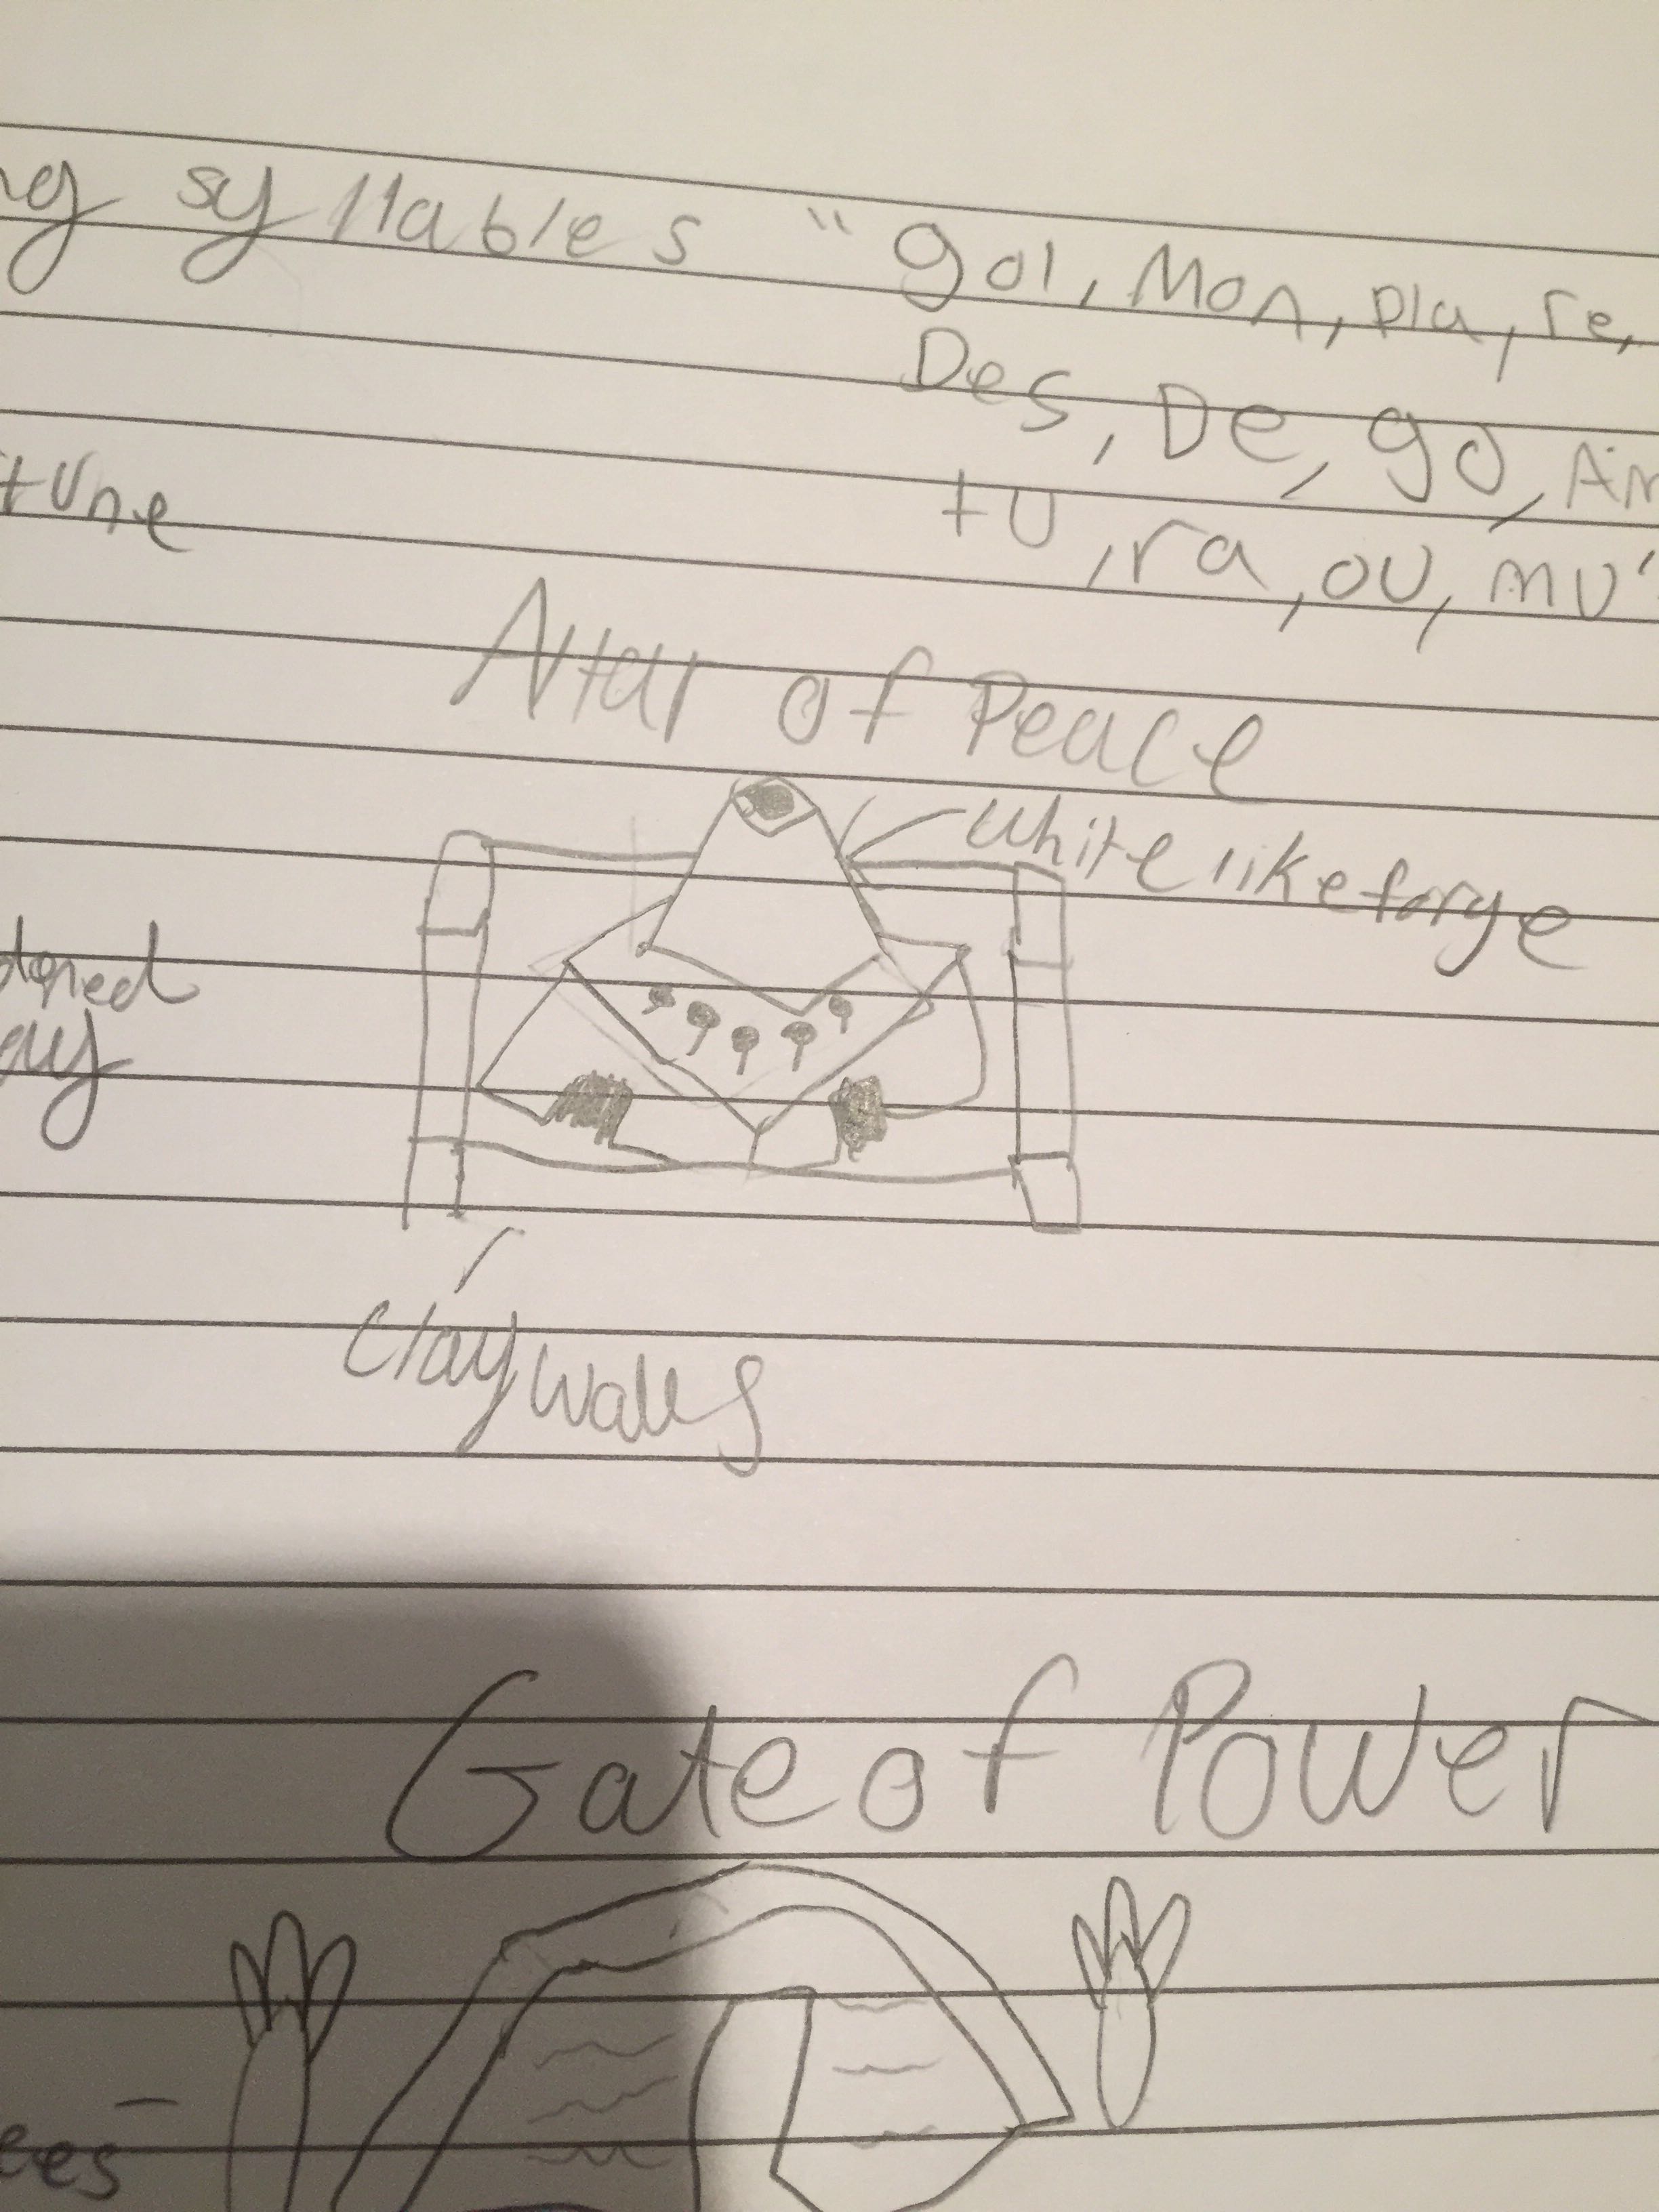 syllables "gol, Mon, pla, re,
Des, De, go, Am
tu, ra, ou, mu"
tune
Altar of Peace
white like forge
clay walls
Gate of Power